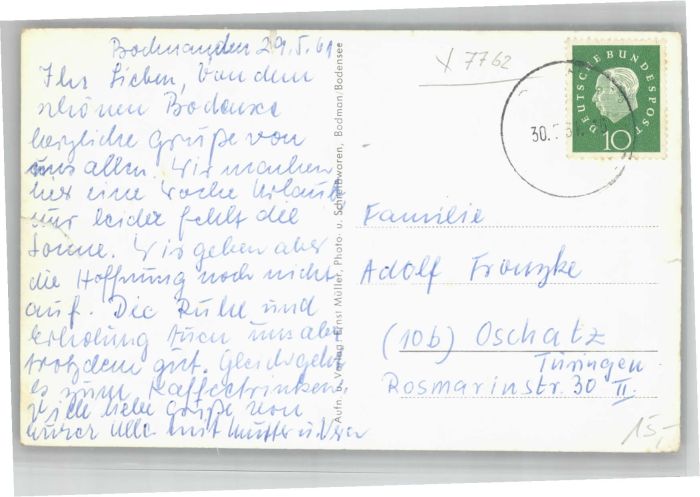 Bodman den 29.5.61
Ihr Lieben, Von dem
schönen Bodensee
herzliche Grüße von
uns allen. Wir machen
hier eine Woche Urlaub
nur leider fehlt die
Sonne. Wir geben aber
die Hoffnung noch nicht
auf. Die Ruhe und
Erholung tuen uns aber
trotzdem gut. Gleich geht
es zum Kaffeetrinken
Viele liebe Grüße von
eurer Ulla mit Mutter u.
Aufn. u. Verlag: Ernst Müller, Photo- u. Schreibwaren, Bodman/Bodensee
7762
DEUTSCHE BUNDESPOST
10
30.
Familie
Adolf Franzke
(10b) Oschatz
Türingen
Rosmarinstr. 30 II.
15,-